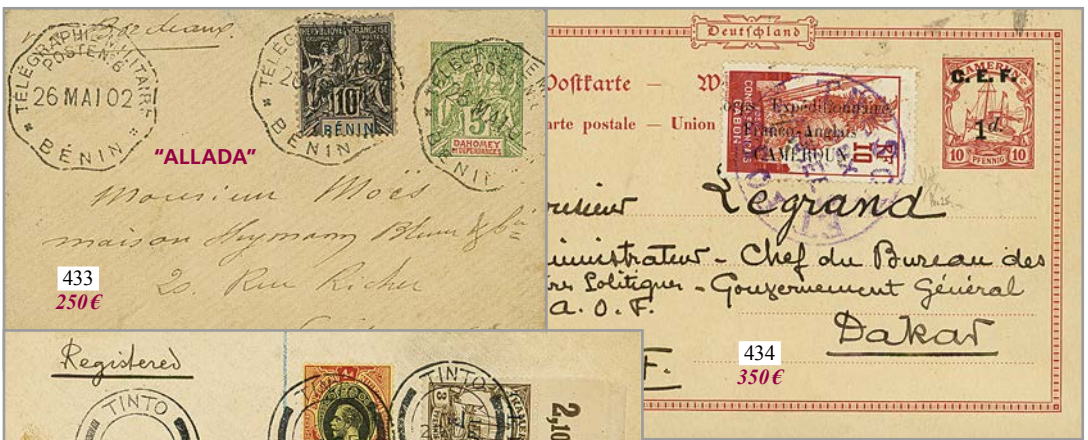 Bordeaux.
TÉLÉGRAPHIE MILITAIRE
POSTE N° 6
26 MAI 02
BÉNIN
RÉPUBLIQUE FRANÇAISE
10
BÉNIN
BÉNIN
5
DAHOMEY
ET DÉPENDANCES
BÉNIN
"ALLADA"
Monsieur Moës
maison Heymann Bloum & Cie
20. Rue Richer
433
250€
Deutschland
Postkarte – W
arte postale – Union
CONGO FRANÇAIS
GABON
10
Corps Expéditionnaire
Franco-Anglais
CAMEROUN
KAMERUN
C.E.F.
1d.
10 PFENNIG 10
Legrand
Administrateur - Chef du Bureau des
res Politiques - Gouvernement Général
A.O.F.
Dakar
F.
434
350€
Registered
TINTO
TINTO
TINTO
3
2,10